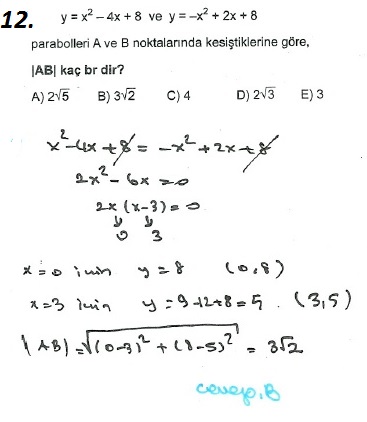 12. y = x² – 4x + 8 ve y = –x² + 2x + 8
parabolleri A ve B noktalarında kesiştiklerine göre,
|AB| kaç br dir?
A) 2√5 B) 3√2 C) 4 D) 2√3 E) 3
x² - 4x + 8 = -x² + 2x + 8
2x² - 6x = 0
2x (x-3) = 0
0 3
x = 0 için y = 8 (0,8)
x = 3 için y = 9-12+8 = 5 . (3,5)
|AB| = √(0-3)² + (8-5)² = 3√2
cevap.B